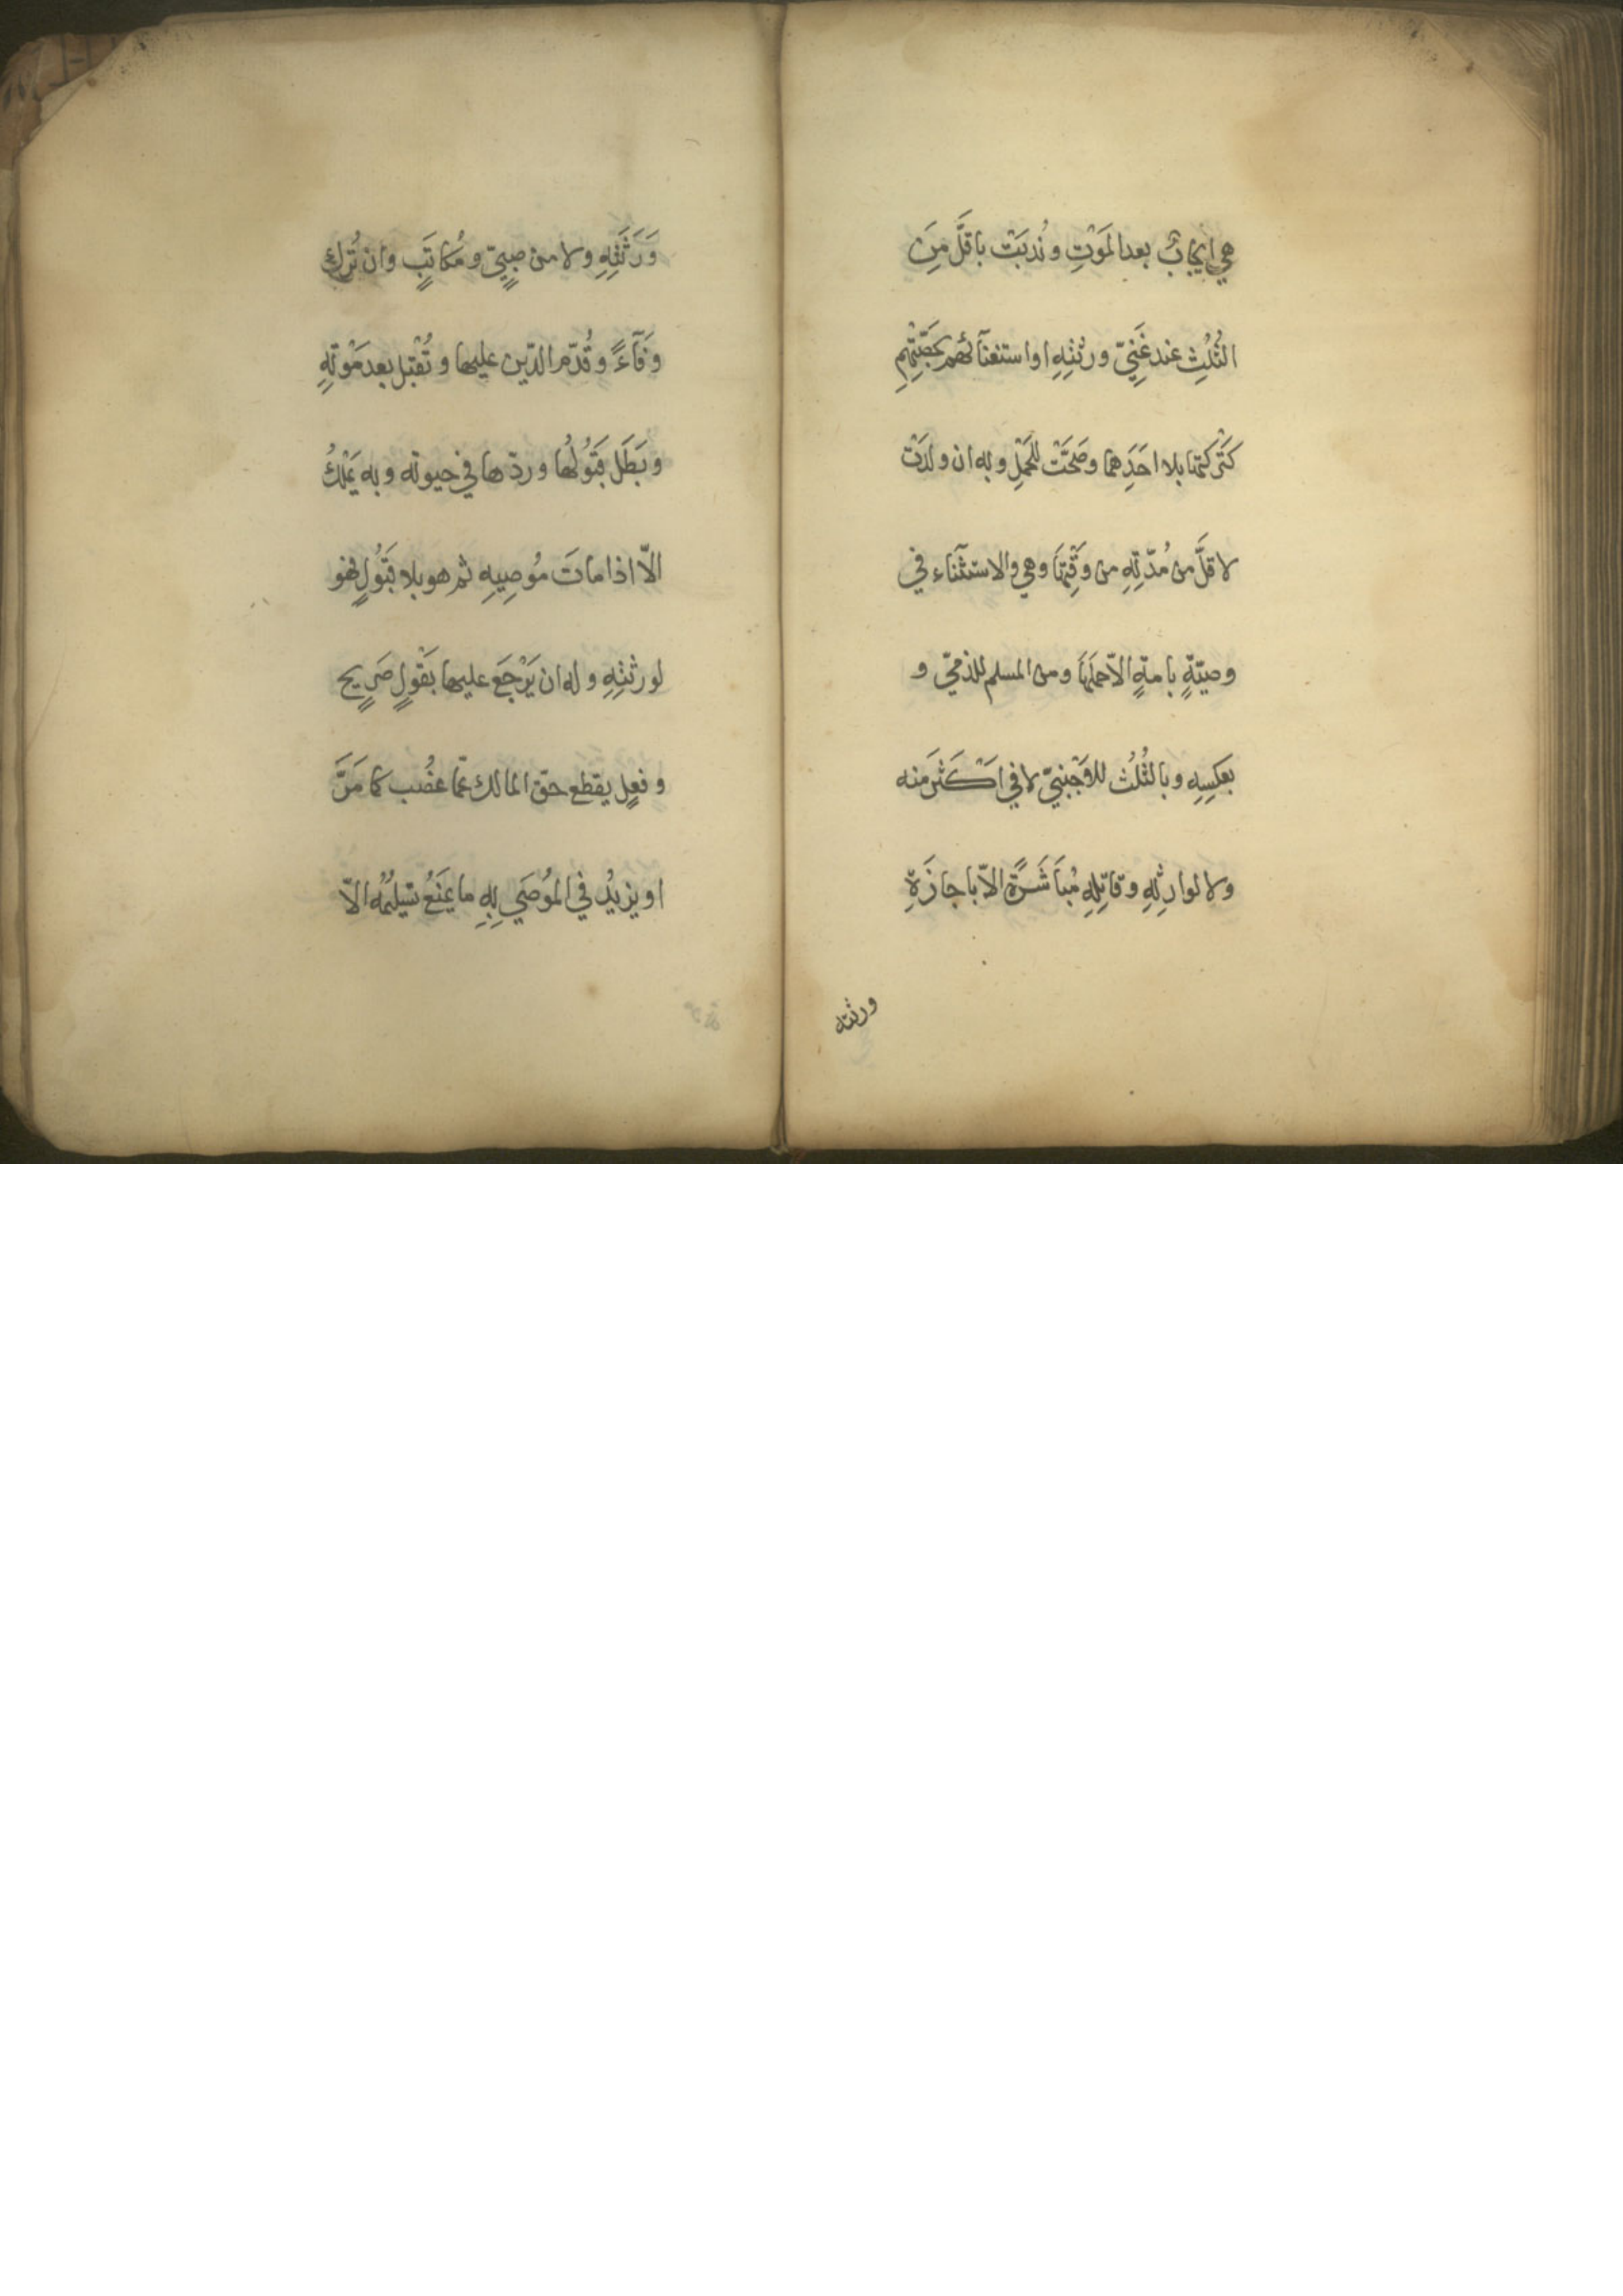 هي ايجابٌ بعد المَوْتِ ونُدبَتْ باقلَّ مِنَ
الثُلُثِ عند غَنِيّ ورثتِهِ او استغنآئهم بحصّتِهِم
كتَرْكتها بلا احَدِهما وصَحَّتْ للحَمْلِ وبه ان ولدَتْ
لاقلَّ من مُدّتِهِ من وَقْتِهَا وهي والاستثنَاء في
وصيّةٍ بامةٍ الاّ حملَهَا ومن المسلم للذميّ و
بعكسِهِ وبالثُلُث للاَجْنبيّ لا في اكْثَرَ منه
ولا لوارثِهِ وقاتِلِهِ مُبَاشَرَةً الاّ باجازَةِ
ورثته
وَرَثَتِهِ ولا من صبِيٍّ ومُكاتَبٍ وان تُرِك
وَفَآءً وقُدّم الدّين عليها وتُقْبل بعد مَوْتِهِ
وبَطَل قَبُولُها وردّها في حيوته وبه يَمْلكُ
الاّ اذا ماتَ مُوصِيهِ ثم هو بلا قَبُولٍ فهو
لورثتِهِ وله ان يَرْجَعَ عليها بقَوْلٍ صَرِيحٍ
وفعلٍ يقطع حق المالك عمّا غُصب كما مَرَّ
او يزيدُ في المُوصَي بِهِ ما يَمْنَعُ تسليمُه الاّ